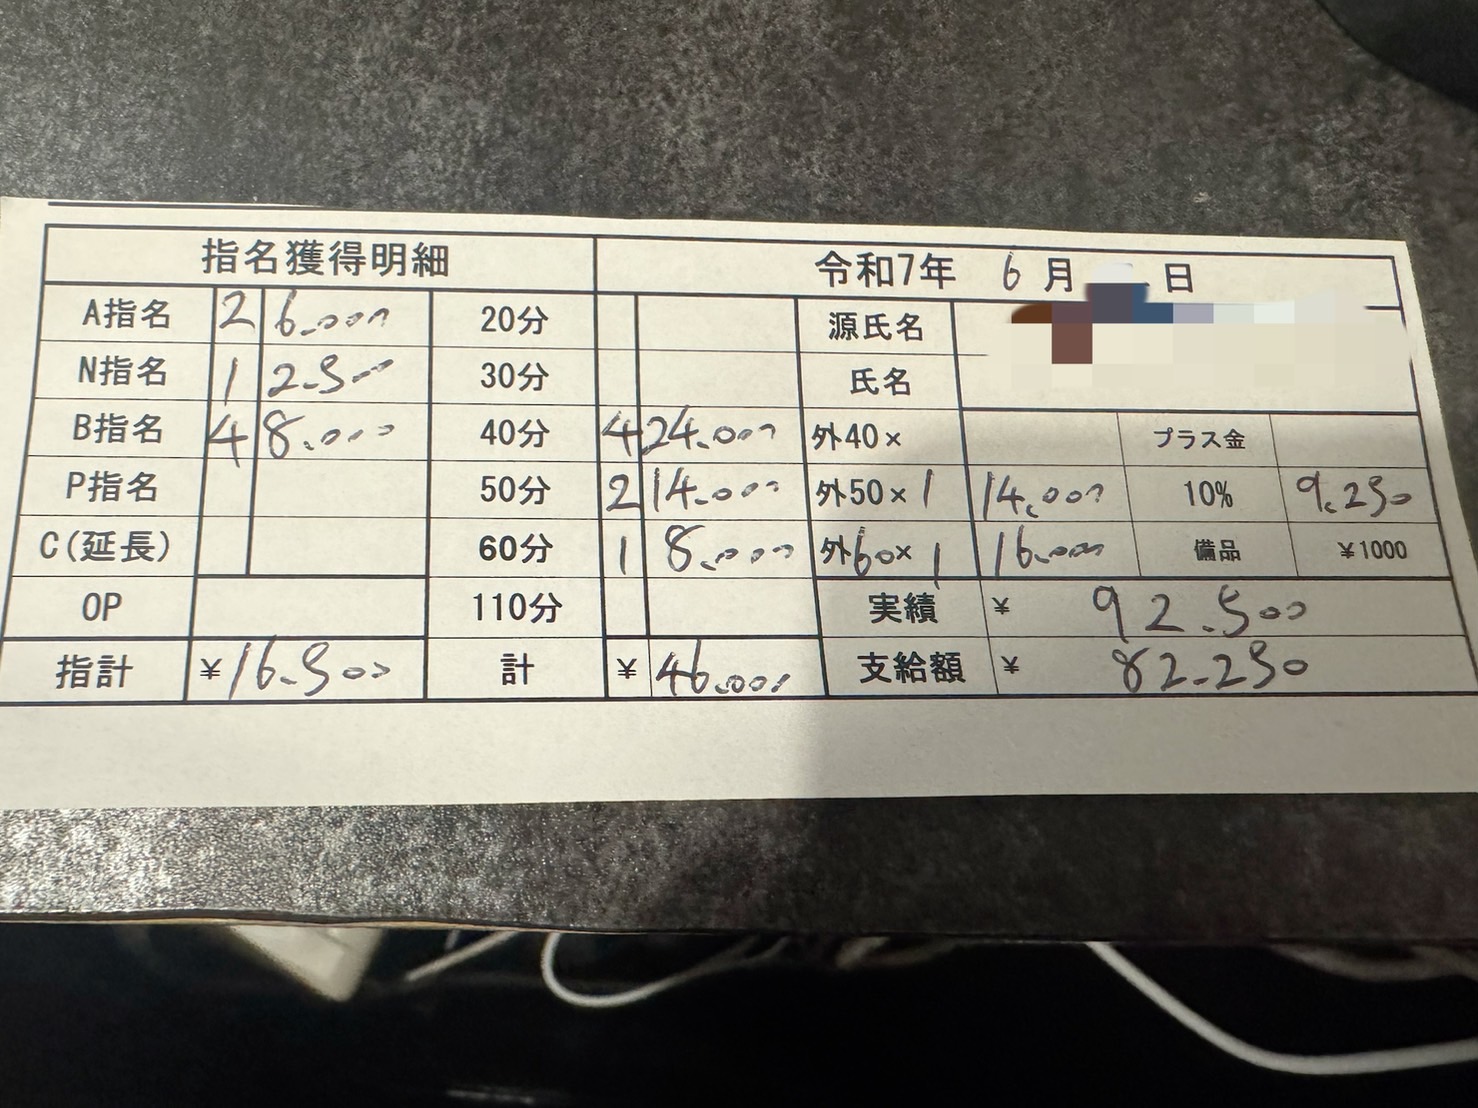 指名獲得明細 令和7年 6月 日
A指名 2 6.000 20分 源氏名
N指名 1 2.500 30分 氏名
B指名 4 8.000 40分 4 24.000 外40× プラス金
P指名 50分 2 14.000 外50×1 14.000 10% 9.250
C(延長) 60分 1 8.000 外60×1 16.000 備品 ¥1000
OP 110分 実績 ¥ 92.500
指計 ¥16.500 計 ¥ 46.000 支給額 ¥ 82.250